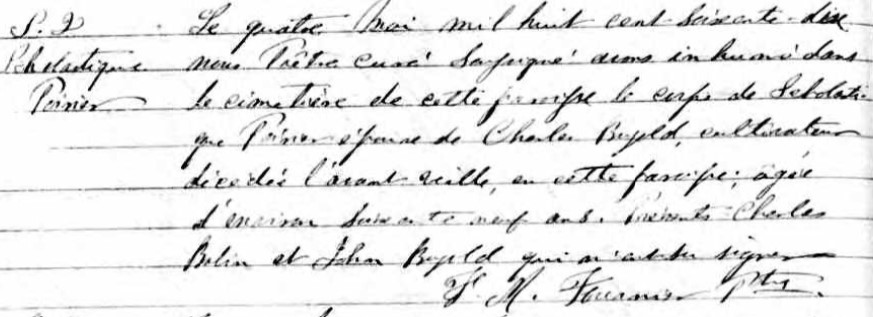 S. 2
Scholastique
Poirier
Le quatre mai mil huit cent soixante-dix
nous Prêtre curé soussigné avons inhumé dans
le cimetière de cette paroisse le corps de Scholasti-
que Poirier épouse de Charles Bujold, cultivateur
décédée l'avant-veille, en cette paroisse, âgée
d'environ soixante neuf ans. Présents Charles
et John Bujold qui n'ont su signer
M. Fournier Ptre.